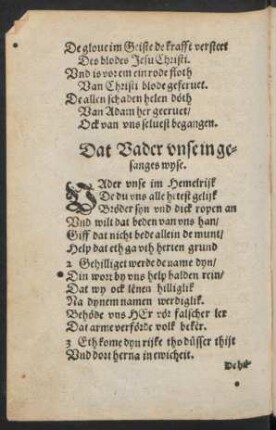 De gloue im Geiste de krafft versteet
Des blodes Jesu Christi.
Vnd is vor em ein rode floth
Van Christi blode geferuet.
De allen schaden helen döth
Van Adam her geeruet/
Ock van vns seluest begangen.
Dat Vader vnse in ge-
sanges wyse.
VAder vnse im Hemelrijk
De du vns alle hetest gelijk
Bröder syn vnd dick ropen an
Vnd wilt dat beden van vns han/
Giff dat nicht bede allein de munt/
Help dat eth ga vth herten grund
2 Gehilliget werde de name dyn/
Din wort by vns help halden rein/
Dat wy ock lenen hilliglik
Na dynem namen werdiglik.
Behöde vns HEr vör falscher ler
Dat arme verförde volk bekër.
3 Eth kome dyn rijke tho düsser thijt
Vnd dort herna in ewicheit.
De hil-